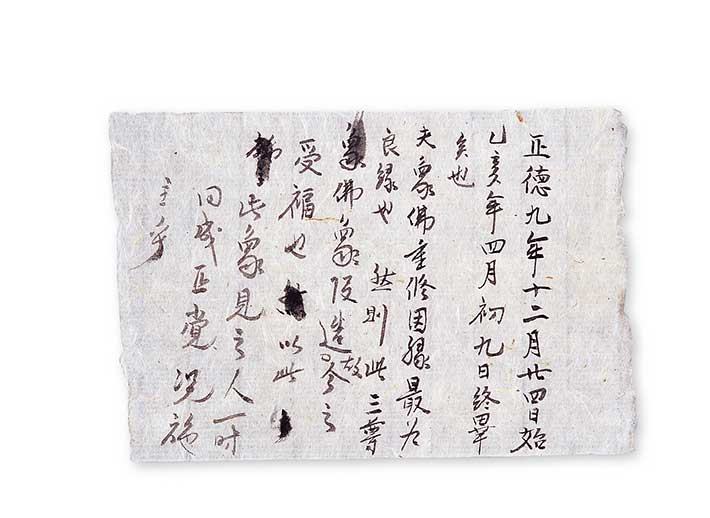 正德九年十二月廿四日始
乙亥年四月初九日終畢
矣也
夫象佛重修因緣最为
良緣也 然則此三尊
象佛象改造故今之
受福也 以此
佛此象見之人一时
同成正覺况施
主乎